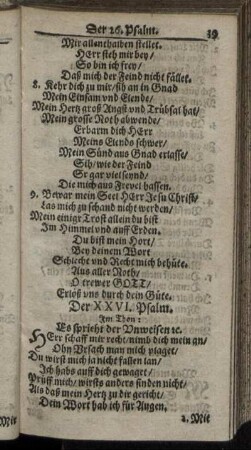 Der 26. Psalm. 39
Mir allenthalben stellet.
HErr steh mir bey/
So bin ich frey/
Daß mich der Feind nicht fället.
8. Kehr dich zu mir/ sih an in Gnad
Mein Einsam vnd Elende/
Mein Hertz groß Angst vnd Trübsal hat/
Mein grosse Not abwende/
Erbarm dich HErr
Meins Elends schwer/
Mein Sünd aus Gnad erlasse/
Sih/ wie der Feind
Er gar viel seynd/
Die mich aus Frevel hassen.
9. Bewar mein Seel HErr Jesu Christ/
Las mich zu schand nicht werden/
Mein einige Trost allein du bist
Im Himmel vnd auff Erden.
Du bist mein Hort/
Bey deinem Wort
Schlecht vnd Recht mich behüte.
Aus aller Noth/
O trewer GOTT/
Erlöß vns durch dein Güte.
Der XXVI. Psalm.
Im Thon:
Es spricht der Vnweisen ꝛc.
HErr schaff mir recht/ nimb dich mein an/
Ohn Vrsach man mich plaget/
Du wirst mich ja nicht fallen lan/
Ich habs auff dich gewaget/
Prüff mich/ wirsts anders finden nicht/
Als daß mein Hertz zu dir gericht/
Dein Wort hab ich für Augen.
2. Mit